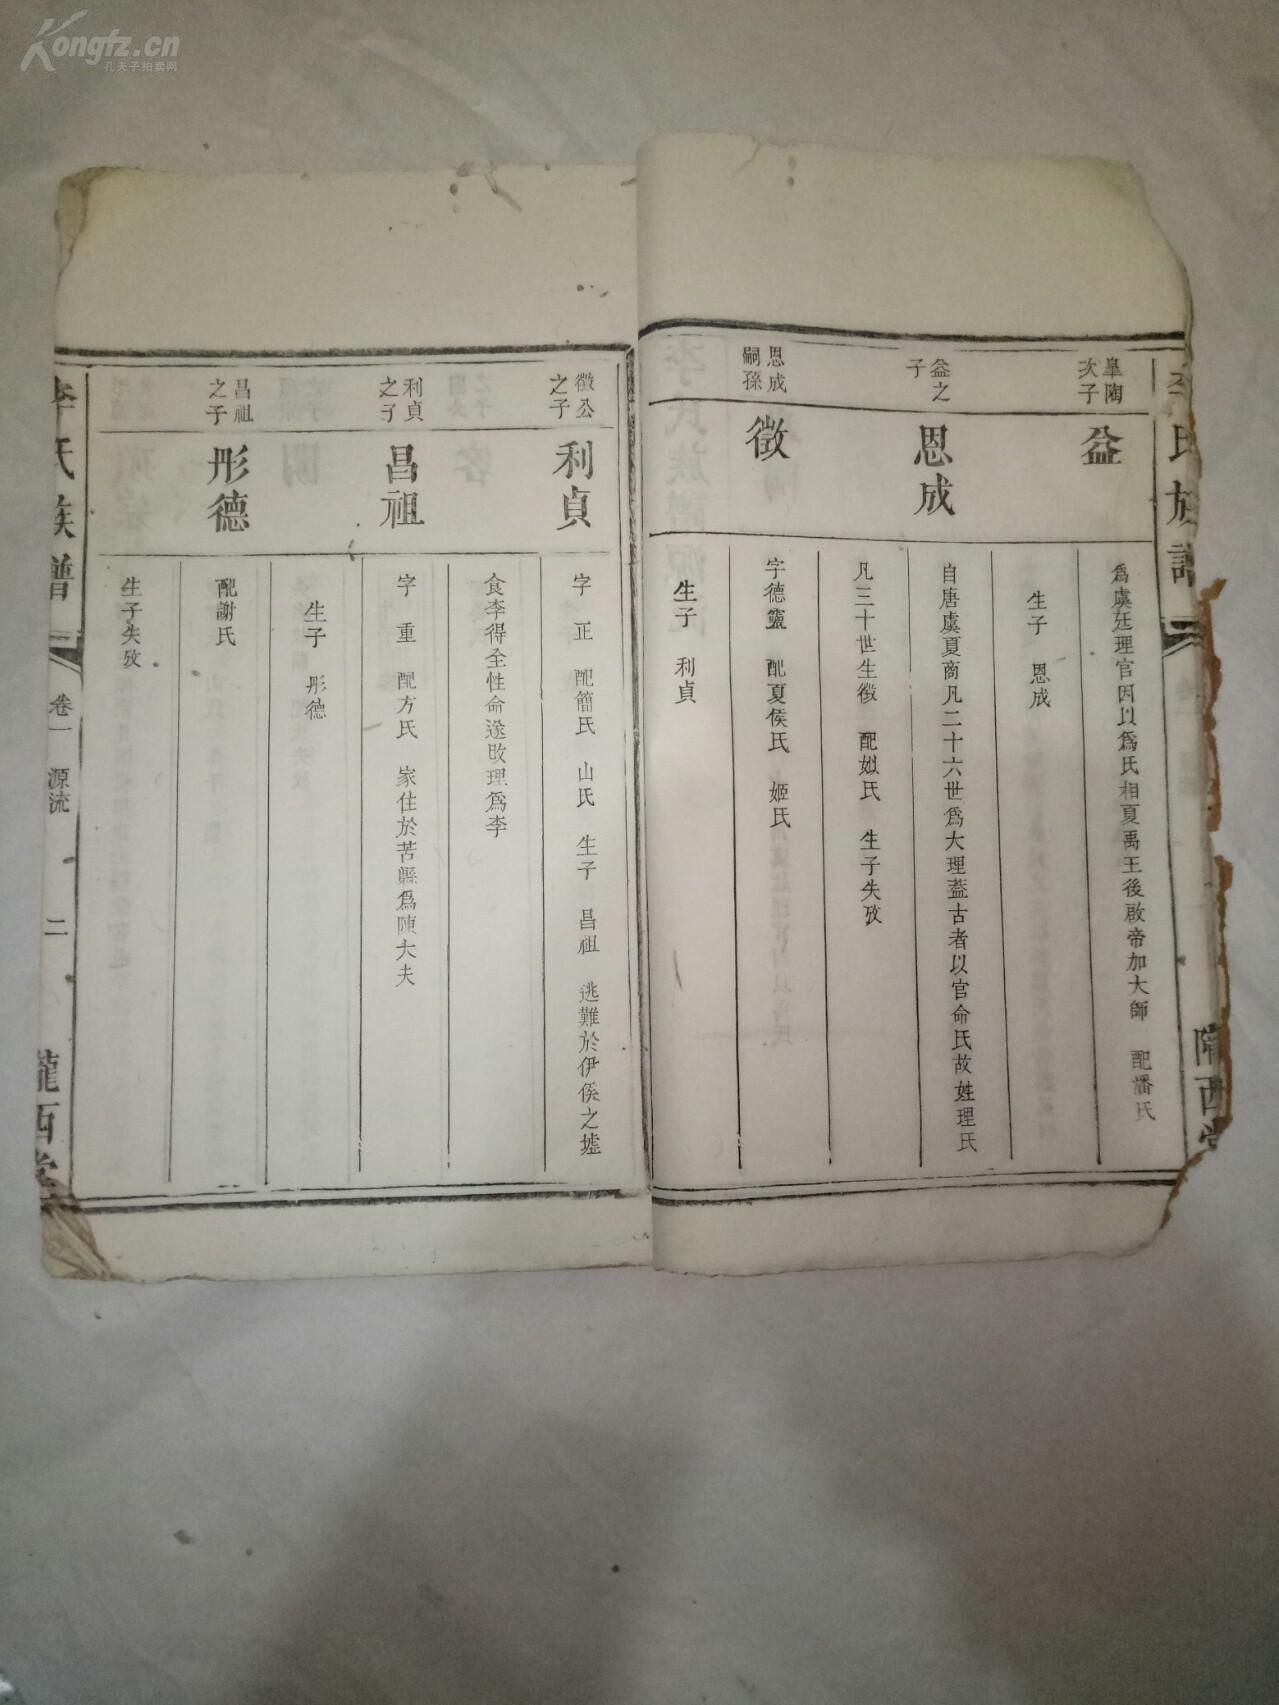 Kongfz.cn
孔夫子拍卖网
李氏族
隴西堂
皋陶次子
益
為虞廷理官因以為氏相夏禹王後啟帝加大師　配潘氏
生子　恩成
益之子
恩成
自唐虞夏商凡二十六世為大理葢古者以官命氏故姓理氏
凡三十世生徵　配姒氏　生子失攷
恩成嗣孫
徵
字德靈　配夏侯氏　姬氏
生子　利貞
徵公之子
利貞
字　正　配簡氏　山氏　生子　昌祖　逃難於伊侯之墟
食李得全性命遂改理為李
利貞之子
昌祖
字　重　配方氏　家住於苦縣為陳大夫
生子　彤德
昌祖之子
彤德
配謝氏
生子失攷
李氏族譜
卷一　源流
二
隴西堂